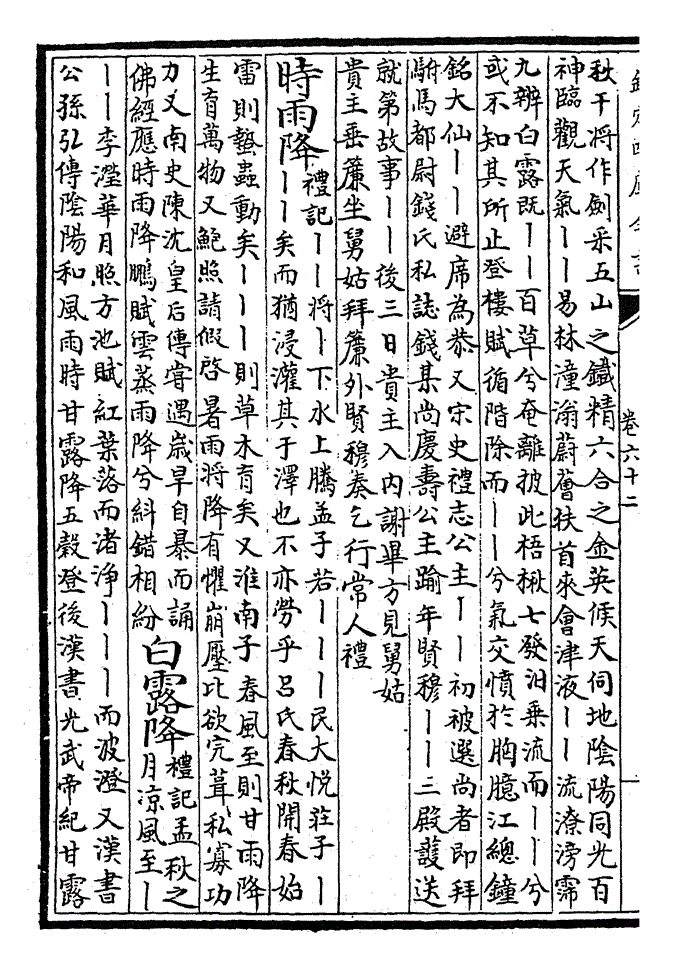 欽定四庫全書
卷六十二
秋干將作劍采五山之鐵精六合之金英候天伺地陰陽同光百
神臨觀天氣丨丨易林潼滃蔚薈扶首來會津液丨丨流潦滂霈
九辨白露既丨丨百草兮奄離披此梧楸七發汨乗流而丨丨兮
或不知其所止登樓賦循階除而丨丨兮氣交憤於胸臆江總鐘
銘大仙丨丨避席為恭又宋史禮志公主丨丨初被選尚者即拜
駙馬都尉錢氏私誌錢某尚慶壽公主踰年賢穆丨丨三殿護送
就第故事丨丨後三日貴主入内謝畢方見舅姑
貴主垂簾坐舅姑拜簾外賢穆奏乞行常人禮
時雨降
禮記丨丨將丨下水上騰孟子若丨丨丨民大悦莊子丨
丨丨矣而猶浸灌其于澤也不亦勞乎吕氏春秋開春始
雷則蟄蟲動矣丨丨丨則草木育矣又淮南子春風至則甘雨降
生育萬物又鮑照請假啓暑雨將降有懼崩壓比欲完葺私寡功
力又南史陳沈皇后傳嘗遇歲旱自暴而誦
佛經應時雨降鵬賦雲蒸雨降兮糾錯相紛
白露降
禮記孟秋之
月凉風至丨
丨丨李瀅華月照方池賦紅葉落而渚浄丨丨丨而波澄又漢書
公孫弘傳陰陽和風雨時甘露降五穀登後漢書光武帝紀甘露